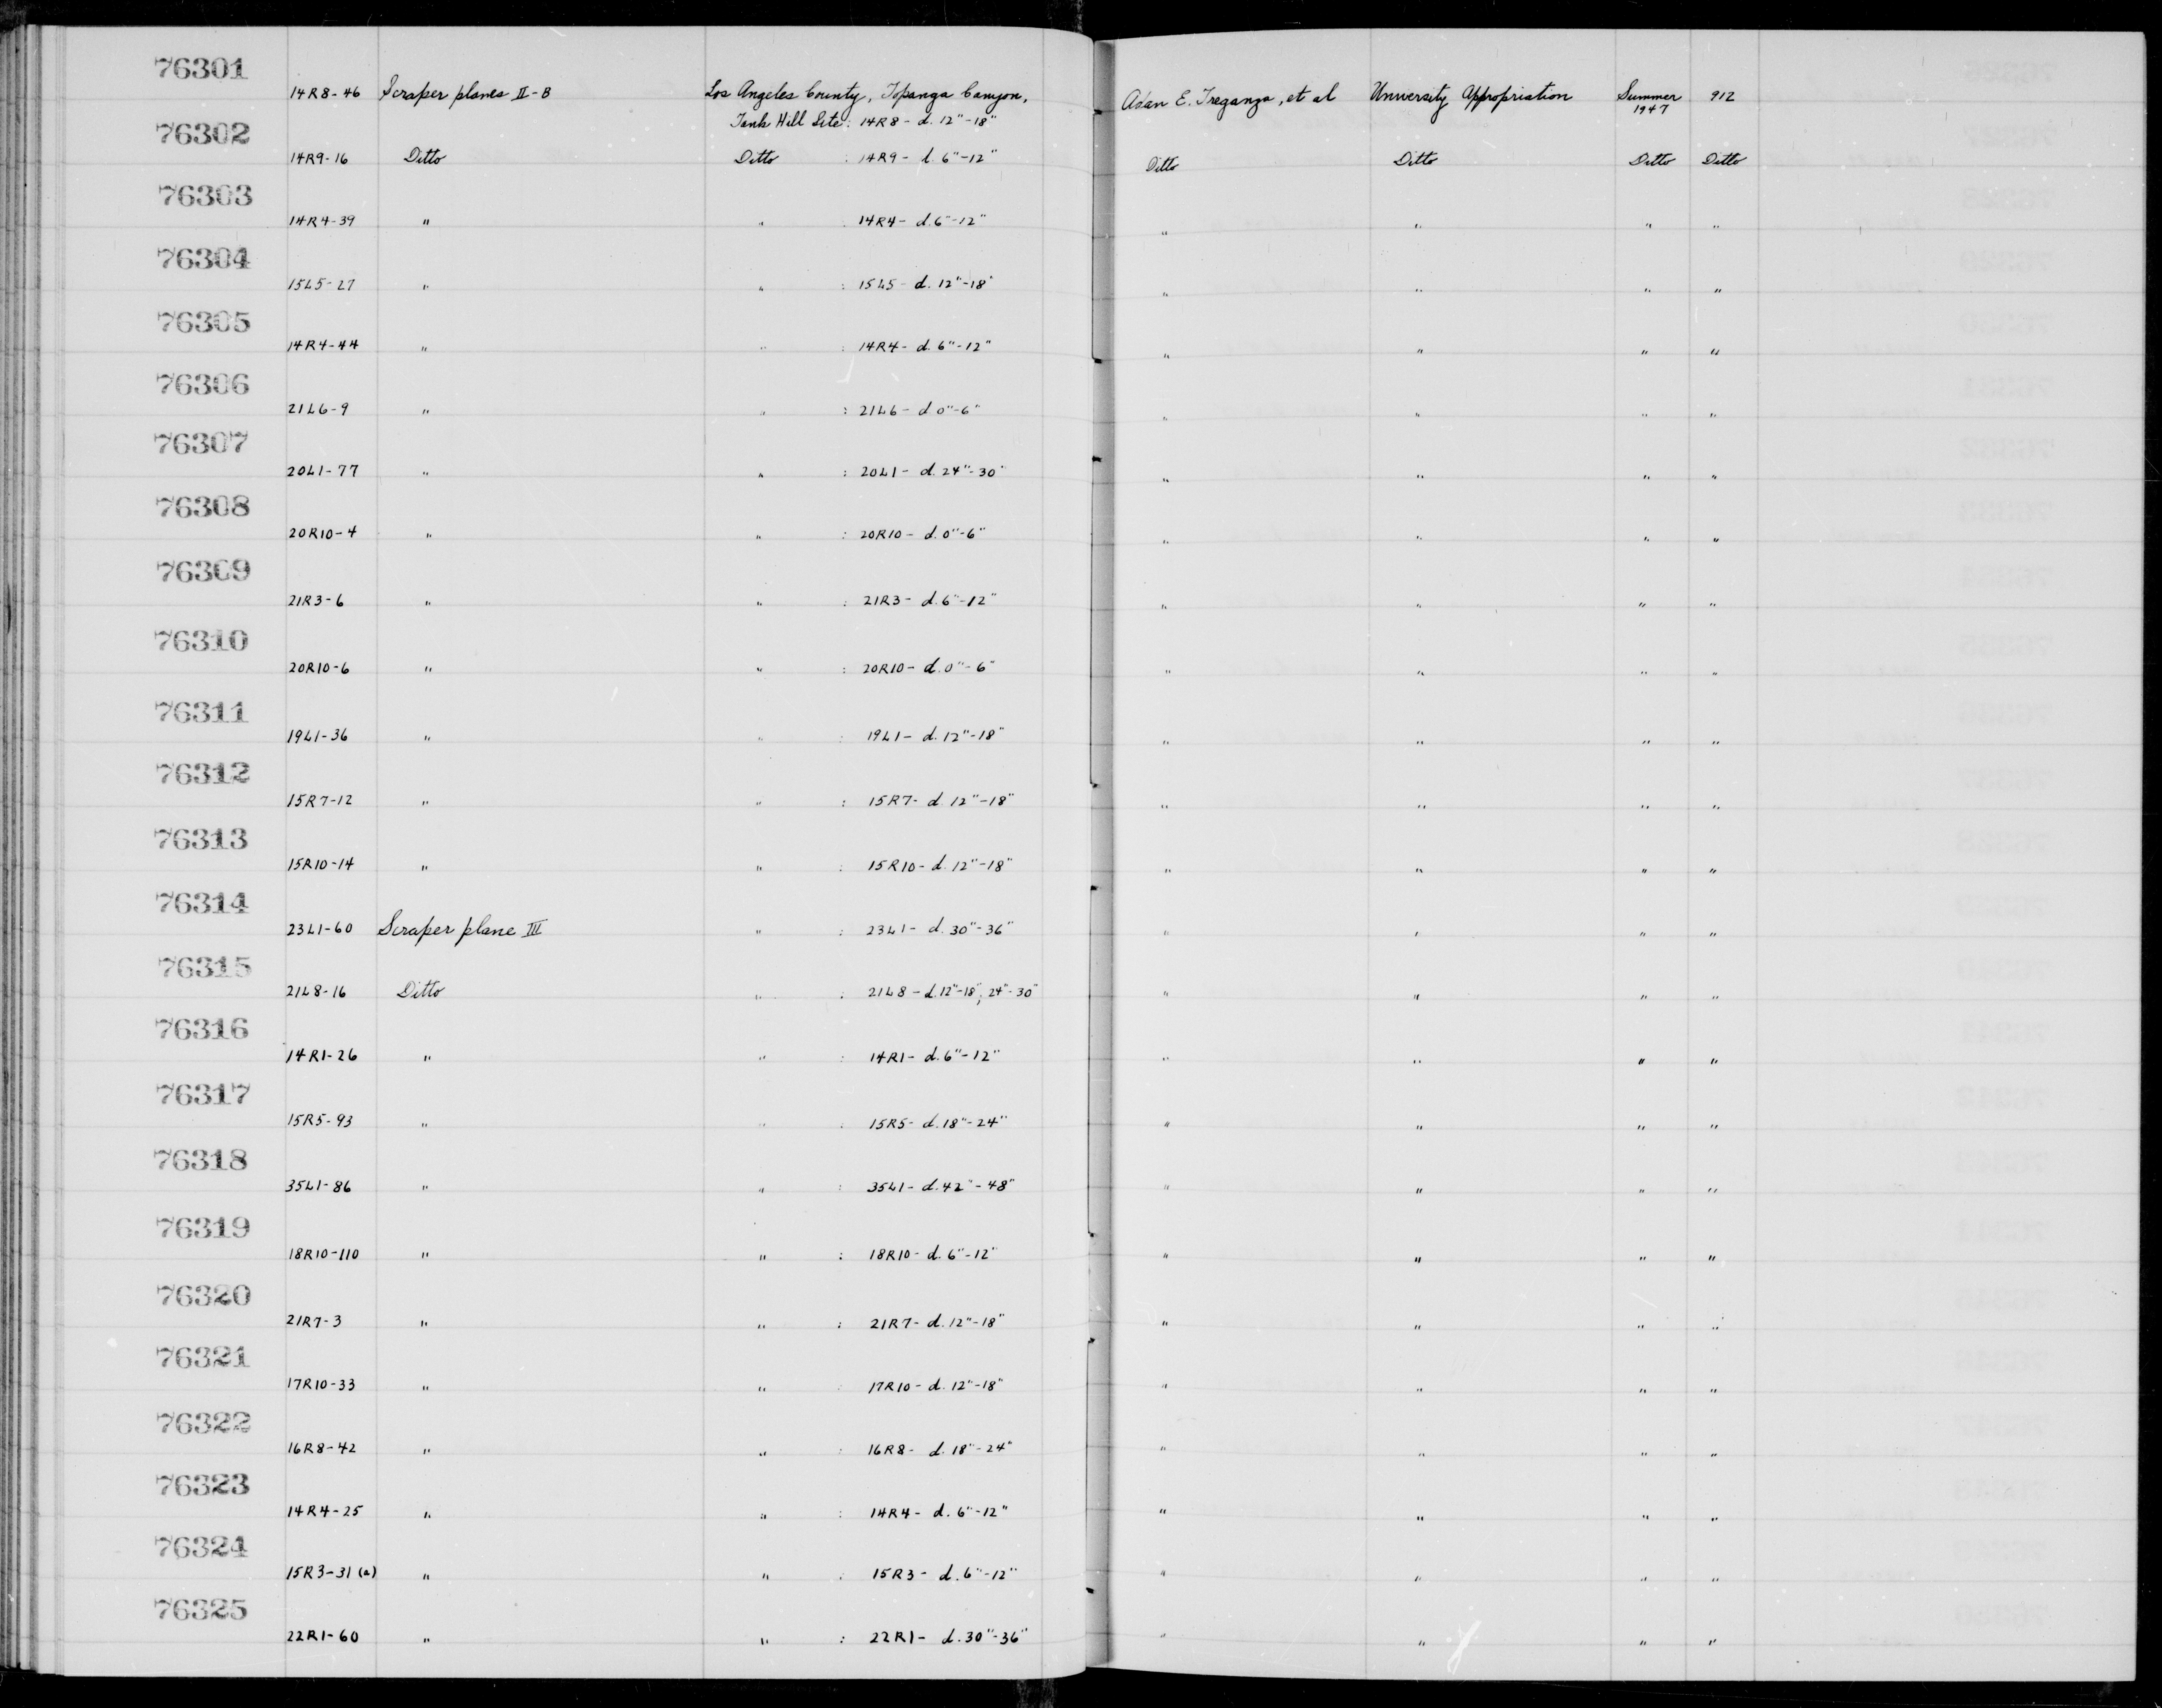 76301
14R8-46 Scraper planes II-B Los Angeles County, Topanga Canyon, Adan E. Treganza, et al University Appropriation Summer 1947 912
Tank Hill Site: 14R8 - d. 12"-18"
76302
14R9-16 Ditto Ditto : 14R9 - d. 6"-12" Ditto Ditto Ditto Ditto
76303
14R4-39 " " : 14R4 - d. 6"-12" " " " "
76304
15L5-27 " " : 15L5 - d. 12"-18" " " " "
76305
14R4-44 " " : 14R4 - d. 6"-12" " " " "
76306
21L6-9 " " : 21L6 - d 0"-6" " " " "
76307
20L1-77 " " : 20L1 - d. 24"-30" " " " "
76308
20R10-4 " " : 20R10 - d. 0"-6" " " " "
76309
21R3-6 " " : 21R3 - d. 6"-12" " " " "
76310
20R10-6 " " : 20R10 - d. 0"-6" " " " "
76311
19L1-36 " " : 19L1 - d. 12"-18" " " " "
76312
15R7-12 " " : 15R7 - d. 12"-18" " " " "
76313
15R10-14 " " : 15R10 - d. 12"-18" " " " "
76314
23L1-60 Scraper plane III " : 23L1 - d. 30"-36" " " " "
76315
21L8-16 Ditto " : 21L8 - d. 12"-18", 24"-30" " " " "
76316
14R1-26 " " : 14R1 - d. 6"-12" " " " "
76317
15R5-93 " " : 15R5 - d. 18"-24" " " " "
76318
35L1-86 " " : 35L1 - d. 42"-48" " " " "
76319
18R10-110 " " : 18R10 - d. 6"-12" " " " "
76320
21R7-3 " " : 21R7 - d. 12"-18" " " " "
76321
17R10-33 " " : 17R10 - d. 12"-18" " " " "
76322
16R8-42 " " : 16R8 - d. 18"-24" " " " "
76323
14R4-25 " " : 14R4 - d. 6"-12" " " " "
76324
15R3-31 (a) " " : 15R3 - d. 6"-12" " " " "
76325
22R1-60 " " : 22R1 - d. 30"-36" " " " "